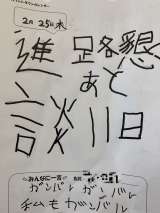 2月 25日 木
進路懇
あと
談 11日
～みんなに一言～
ガンバレ ガンバル
私もガンバル